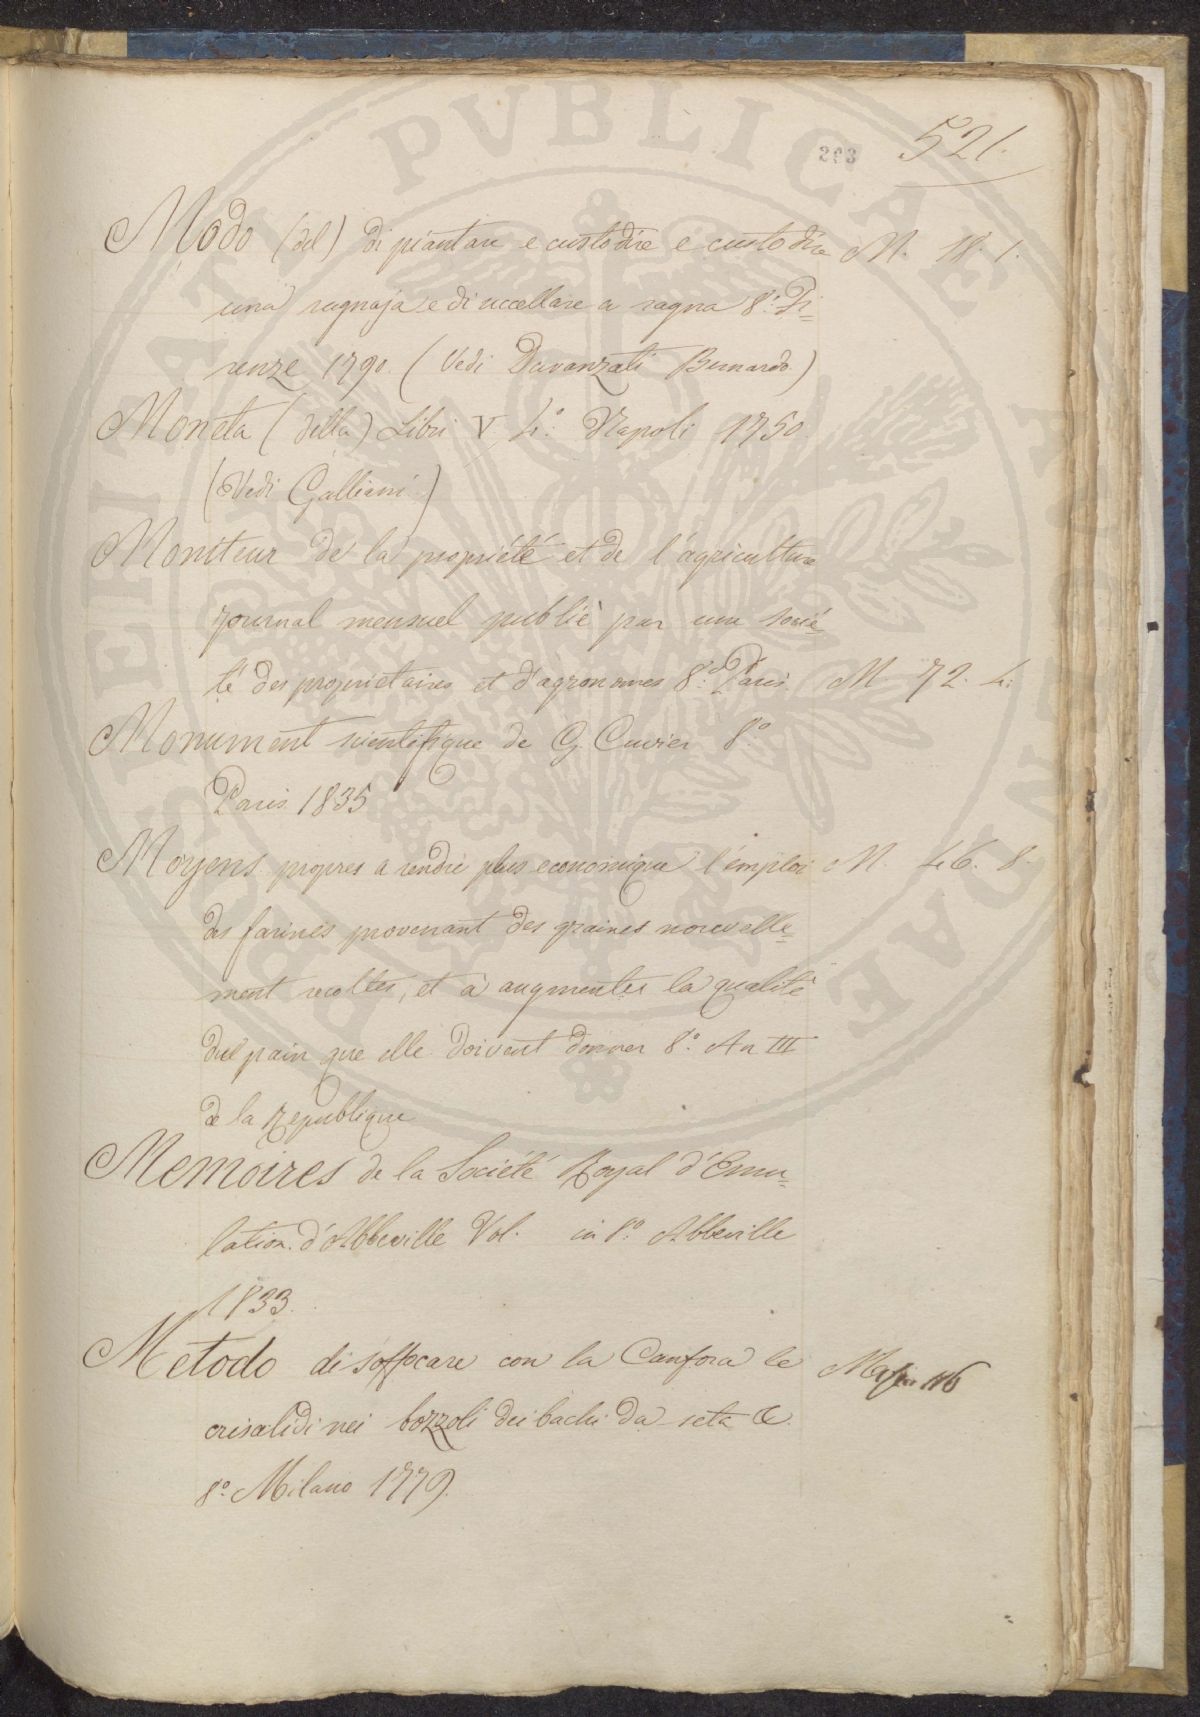 203
521.
Modo (del) di piantare e custodire e custodire M. 18. 1.
una ragnaja e di uccellare a ragna 8.° Fi=
renze 1790. (Vedi Davanzati Bernardo)
Moneta (della) Libri V 4.° Napoli 1750.
(Vedi Galliani)
Moniteur de la propriété et de l'agriculture
journal mensuel publiè par une socié=
té des proprietaires et d'agronomes 8.° Paris. M 72. 4.
Monument scientifique de G. Cuvier 8.°
Paris 1835
Moyens propres a rendre plus economique l'emploi M. 46. 8.
des farines provenant des graines nouvelle=
ment recoltes, et à augmenter la qualitè
del pain que elle doivent donner 8.° An III
de la Republique
Memoires de la Société Royal d'Emu=
lation. d'Abbeville Vol. in 8.° Abbeville
1833.
Metodo di soffocare con la Canfora le
crisalidi nei bozzoli dei bachi da seta &.
8.° Milano 1779.
PROSPERITATI PVBLICAE AVGENDAE